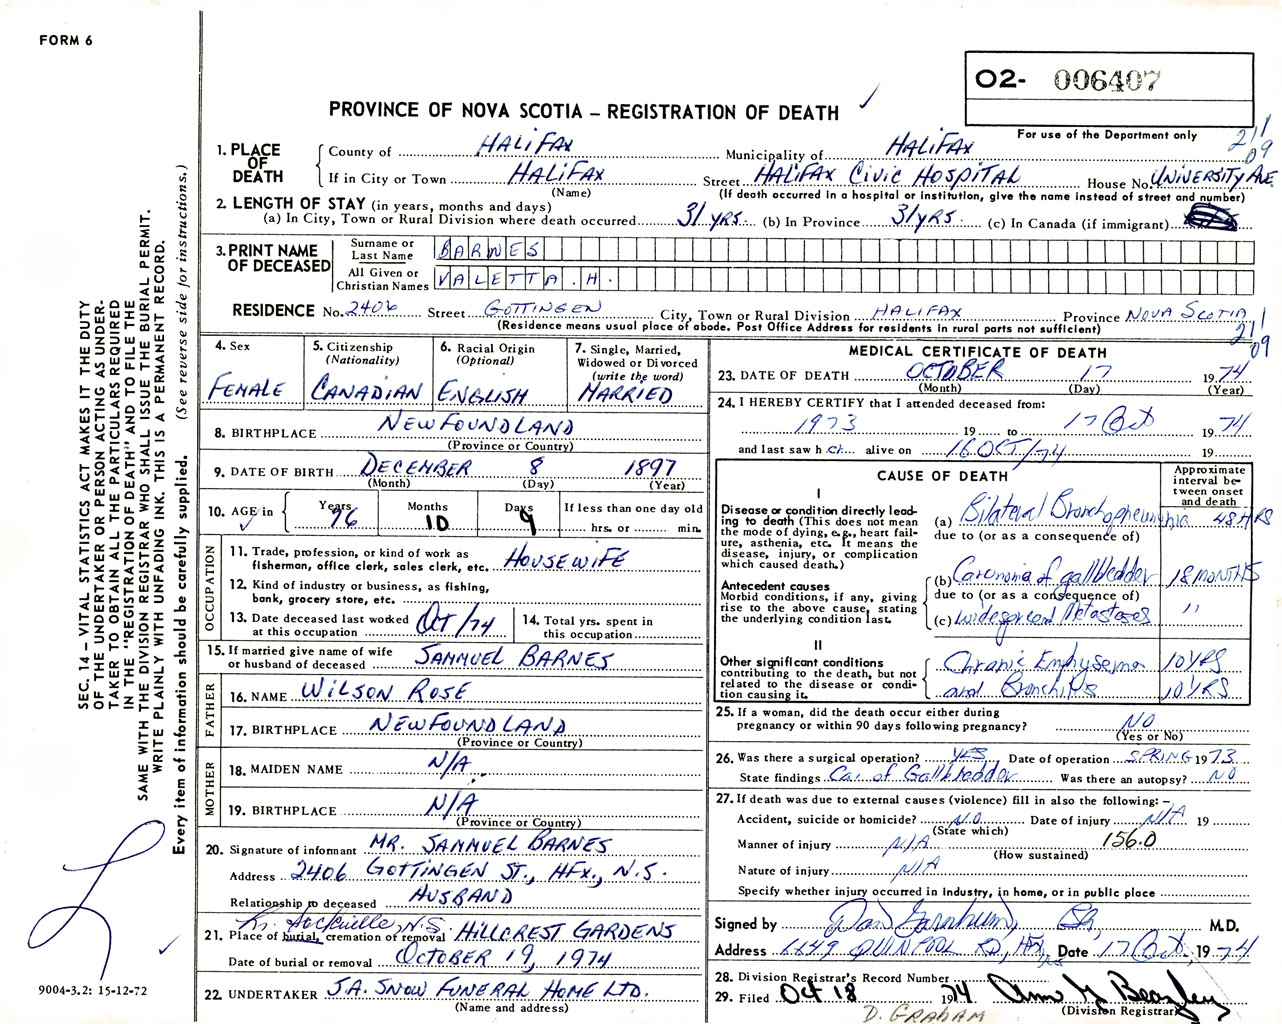 FORM 6
O2- 006407
PROVINCE OF NOVA SCOTIA – REGISTRATION OF DEATH
For use of the Department only
211
09
1. PLACE OF DEATH
County of HALIFAX Municipality of HALIFAX
If in City or Town HALIFAX Street HALIFAX CIVIC HOSPITAL House No. UNIVERSITY AVE.
(Name) (If death occurred in a hospital or institution, give the name instead of street and number)
2. LENGTH OF STAY (in years, months and days)
(a) In City, Town or Rural Division where death occurred 31 YRS. (b) In Province 31 YRS. (c) In Canada (if immigrant)
3. PRINT NAME OF DECEASED
Surname or Last Name BARNES
All Given or Christian Names VALETTA . H.
RESIDENCE No. 2406 Street GOTTINGEN City, Town or Rural Division HALIFAX Province NOVA SCOTIA
(Residence means usual place of abode. Post Office Address for residents in rural parts not sufficient)
211
09
4. Sex
FEMALE
5. Citizenship (Nationality)
CANADIAN
6. Racial Origin (Optional)
ENGLISH
7. Single, Married, Widowed or Divorced (write the word)
MARRIED
8. BIRTHPLACE NEWFOUNDLAND
(Province or Country)
9. DATE OF BIRTH DECEMBER 8 1897
(Month) (Day) (Year)
10. AGE in Years 76 Months 10 Days 9 If less than one day old hrs. or min.
OCCUPATION
11. Trade, profession, or kind of work as fisherman, office clerk, sales clerk, etc. HOUSEWIFE
12. Kind of industry or business, as fishing, bank, grocery store, etc.
13. Date deceased last worked at this occupation OCT/74
14. Total yrs. spent in this occupation
15. If married give name of wife or husband of deceased SAMMUEL BARNES
FATHER
16. NAME WILSON ROSE
17. BIRTHPLACE NEWFOUNDLAND
(Province or Country)
MOTHER
18. MAIDEN NAME N/A
19. BIRTHPLACE N/A
(Province or Country)
20. Signature of informant MR. SAMMUEL BARNES
Address 2406 GOTTINGEN ST., HFX., N.S.
Relationship to deceased HUSBAND
Sackville, N.S.
21. Place of burial, cremation or removal HILLCREST GARDENS
Date of burial or removal OCTOBER 19, 1974
22. UNDERTAKER J.A. SNOW FUNERAL HOME LTD.
(Name and address)
MEDICAL CERTIFICATE OF DEATH
23. DATE OF DEATH OCTOBER 17 1974
(Month) (Day) (Year)
24. I HEREBY CERTIFY that I attended deceased from:
1973 19 to 17 Oct 1974
and last saw h er alive on 16 OCT/74 19
CAUSE OF DEATH
Approximate interval between onset and death
I
Disease or condition directly leading to death (This does not mean the mode of dying, e.g., heart failure, asthenia, etc. It means the disease, injury, or complication which caused death.)
(a) Bilateral Bronchopneumonia 48 HRS
due to (or as a consequence of)
Antecedent causes
Morbid conditions, if any, giving rise to the above cause, stating the underlying condition last.
(b) Carcinoma of gallbladder 18 MONTHS
due to (or as a consequence of)
(c) Widespread Metastases "
II
Other significant conditions contributing to the death, but not related to the disease or condition causing it.
Chronic Emphysema 10 YRS
and Bronchitis 10 YRS
25. If a woman, did the death occur either during pregnancy or within 90 days following pregnancy? NO
(Yes or No)
26. Was there a surgical operation? YES Date of operation SPRING 1973
State findings Ca. of Gallbladder Was there an autopsy? NO
27. If death was due to external causes (violence) fill in also the following: –
Accident, suicide or homicide? NO Date of injury N/A 19
(State which)
Manner of injury N/A 156.0
(How sustained)
Nature of injury N/A
Specify whether injury occurred in industry, in home, or in public place
Signed by M.D.
Address 6649 QUINPOOL RD, HFX, Date 17 Oct, 1974
28. Division Registrar's Record Number
29. Filed Oct 18 1974 Ann M. Beazley
(Division Registrar)
D. GRAHAM
SEC. 14 – VITAL STATISTICS ACT MAKES IT THE DUTY
OF THE UNDERTAKER OR PERSON ACTING AS UNDER-
TAKER TO OBTAIN ALL THE PARTICULARS REQUIRED
IN THE "REGISTRATION OF DEATH" AND TO FILE THE
SAME WITH THE DIVISION REGISTRAR WHO SHALL ISSUE THE BURIAL PERMIT.
WRITE PLAINLY WITH UNFADING INK. THIS IS A PERMANENT RECORD.
Every item of information should be carefully supplied. (See reverse side for instructions.)
9004-3.2: 15-12-72